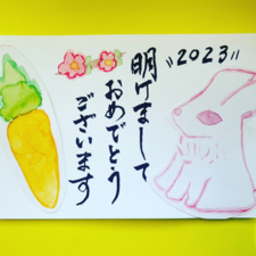 "2023"
明けまして
おめでとう
ございます